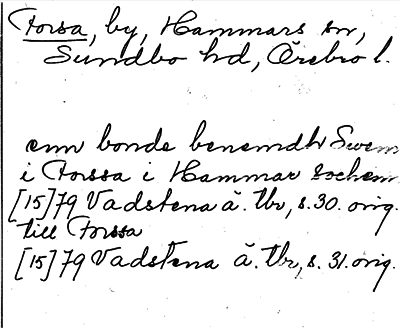 Forsa, by, Hammars sn,
Sundbo hd, Örebro l.
enn bonde benemdh Swen
i Forssa i Hammar sochem
[15]79 Vadstena ä. tbr, s. 30. orig.
till Forssa
[15]79 Vadstena ä. tbr, s. 31. orig.